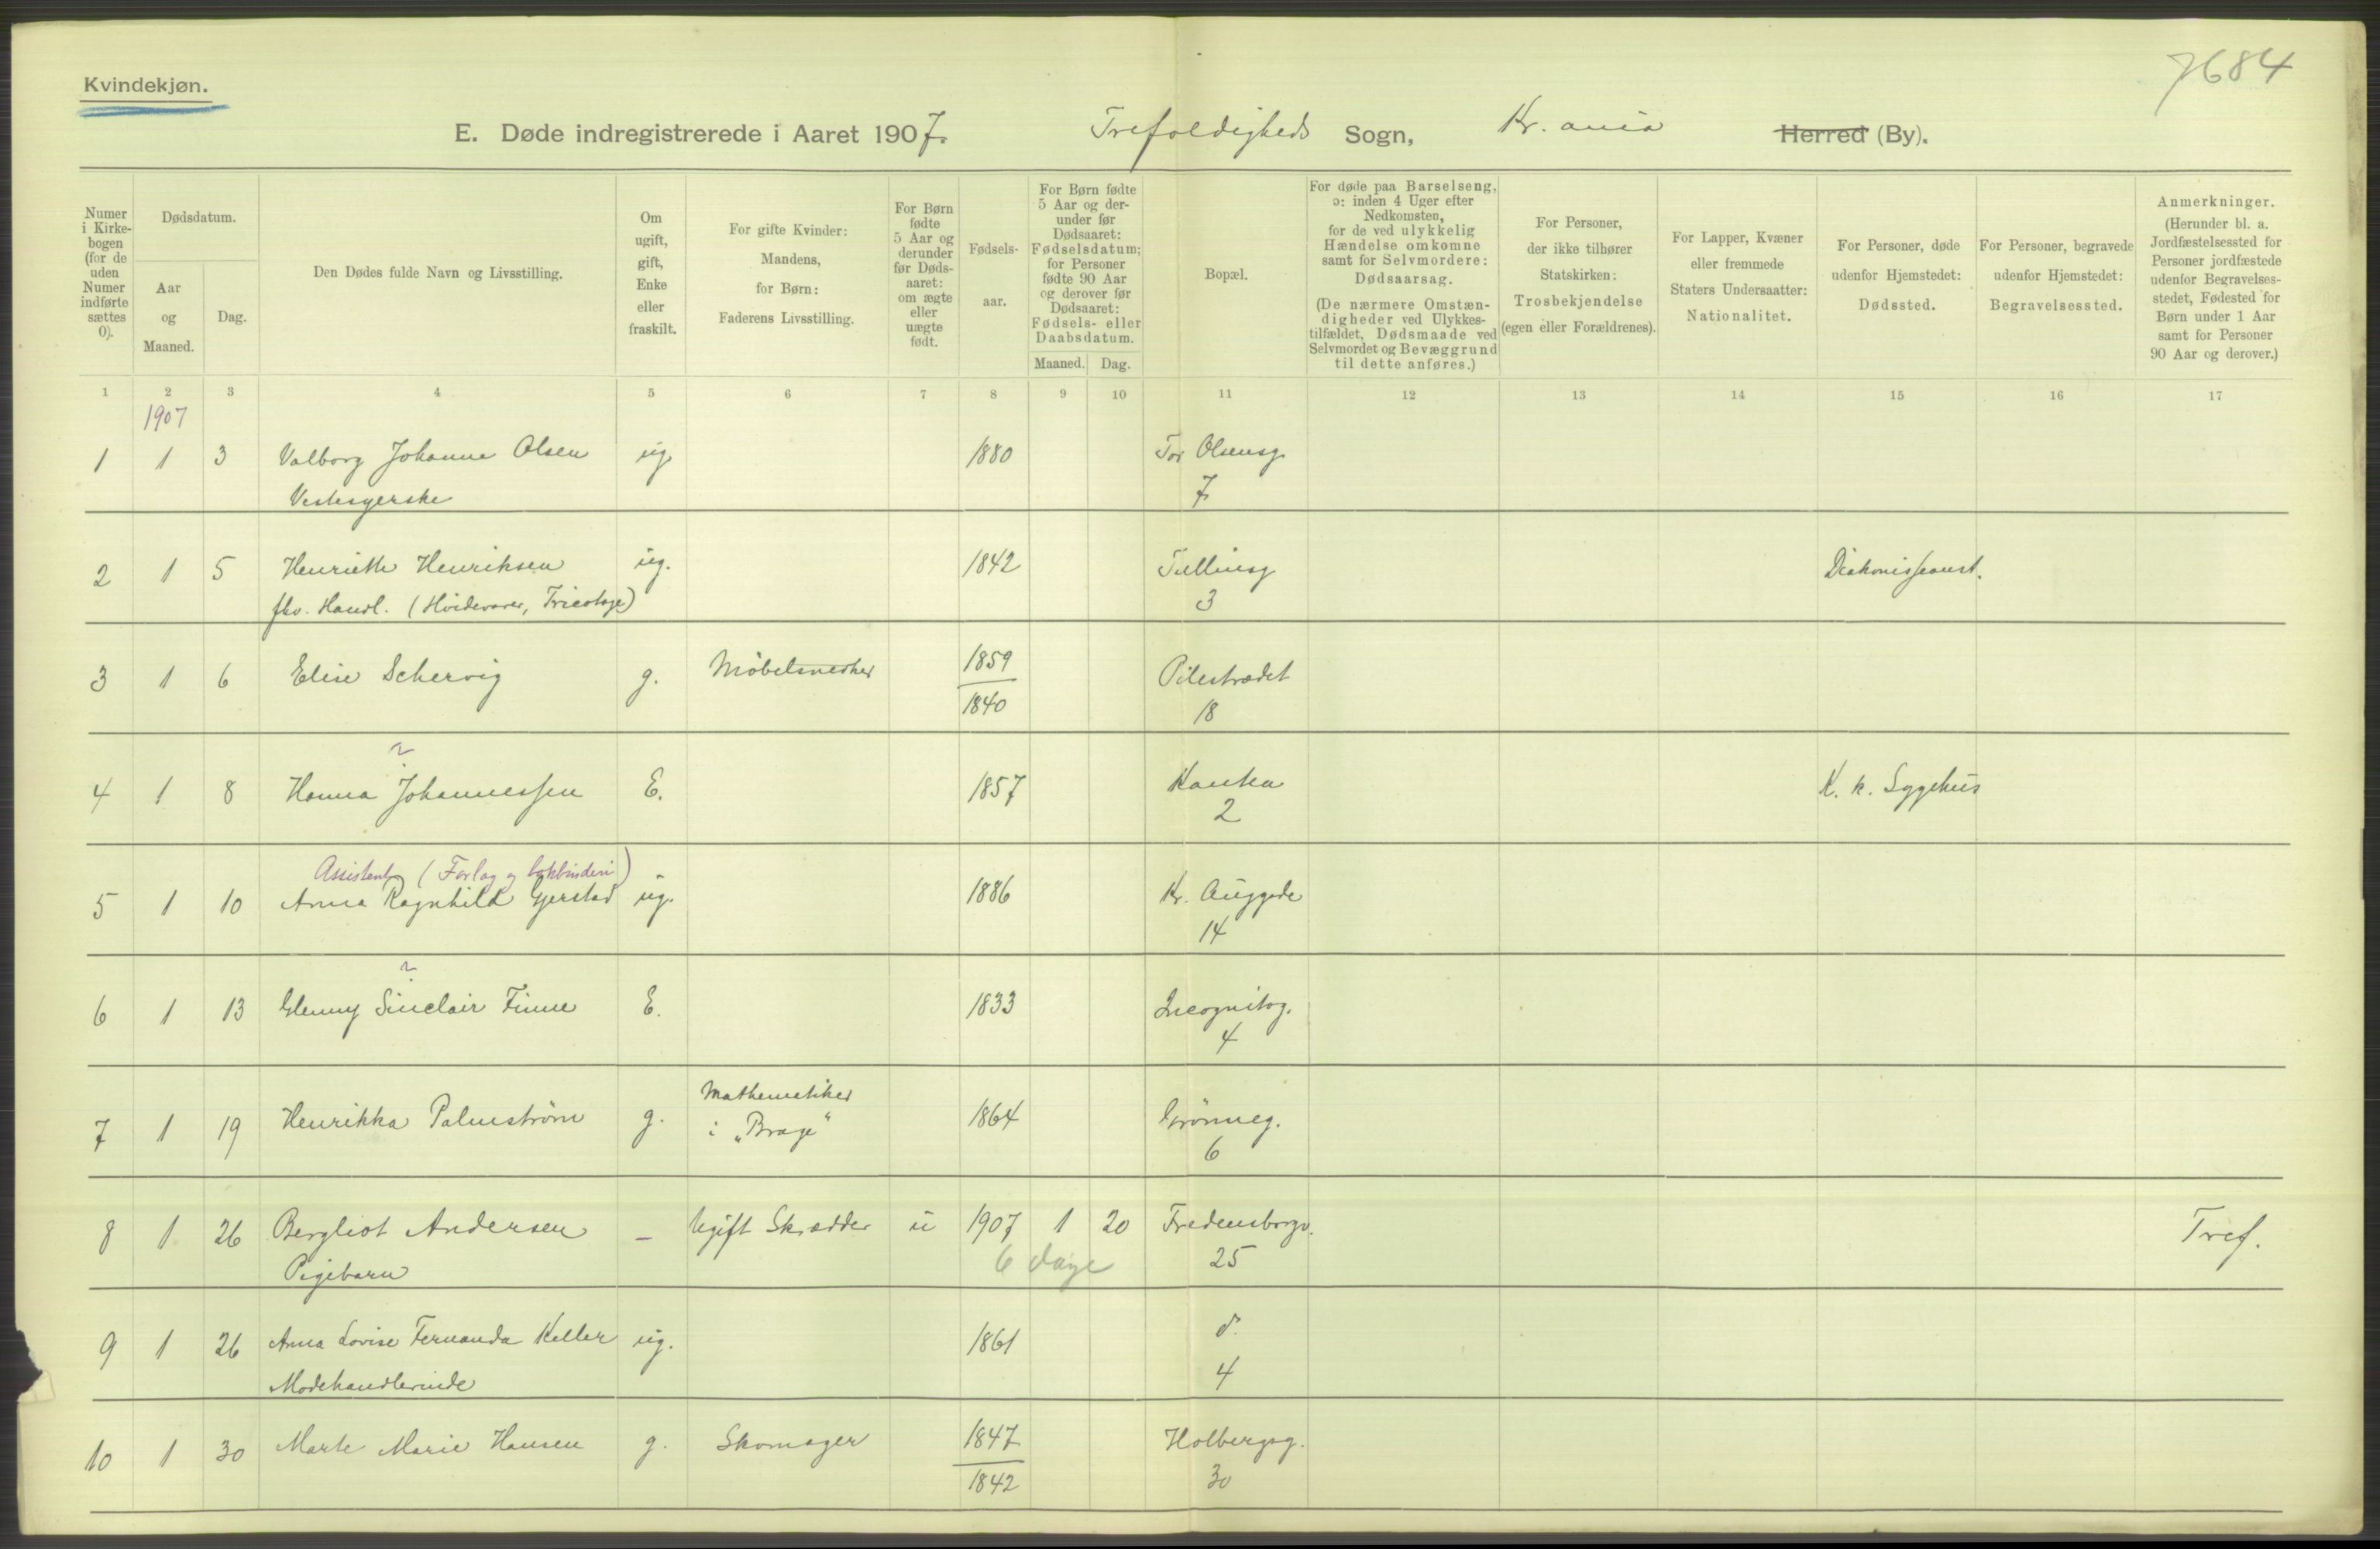 7684
Kvindekjøn.
E. Døde indregistrerede i Aaret 1907. Trefoldigheds Sogn, Kr. ania Herred (By).
Numer i Kirke- bogen (for de uden Numer indførte sættes 0).
Dødsdatum.
Aar og Maaned.
Dag.
Den Dødes fulde Navn og Livsstilling.
Om ugift, gift, Enke eller fraskilt.
For gifte Kvinder: Mandens, for Børn: Faderens Livsstilling.
For Børn fødte 5 Aar og derunder før Døds- aaret: om ægte eller uægte født.
Fødsels- aar.
For Børn fødte 5 Aar og der- under før Dødsaaret: Fødselsdatum; for Personer fødte 90 Aar og derover før Dødsaaret: Fødsels- eller Daabsdatum.
Maaned. Dag.
Bopæl.
For døde paa Barselseng, ɔ: inden 4 Uger efter Nedkomsten, for de ved ulykkelig Hændelse omkomne samt for Selvmordere: Dødsaarsag. (De nærmere Omstæn- digheder ved Ulykkes- tilfældet, Dødsmaade ved Selvmordet og Bevæggrund til dette anføres.)
For Personer, der ikke tilhører Statskirken: Trosbekjendelse (egen eller Forældrenes).
For Lapper, Kvæner eller fremmede Staters Undersaatter: Nationalitet.
For Personer, døde udenfor Hjemstedet: Dødssted.
For Personer, begravede udenfor Hjemstedet: Begravelsessted.
Anmerkninger. (Herunder bl. a. Jordfæstelsessted for Personer jordfæstede udenfor Begravelses- stedet, Fødested for Børn under 1 Aar samt for Personer 90 Aar og derover.)
1 2 3 4 5 6 7 8 9 10 11 12 13 14 15 16 17
1907
1 1 3 Valborg Johanne Olsen ug 1880 Tor Olsensg.
Vestesyerske 7
2 1 5 Henriette Henriksen ug. 1842 Tullinsg Diakonisseanst.
fhv. Handl. (Hvidevarer, Tricotage) 3
3 1 6 Elise Schervig g. Møbelsnedker 1859 Pilestrædet
1840 18
?
4 1 8 Hanna Johannessen E. 1857 Kanka K. k. Sygehus
2
Assistent (Forlag og bokbinderi)
5 1 10 Anna Ragnhild Gjerstad ug. 1886 Kr. Auggade
14
?
6 1 13 Glenny Sinclair Finne E. 1833 Incognitog.
4
Mathematiker
7 1 19 Henrikka Palmstrøm g. i „Brage“ 1864 Grønneg.
6
8 1 26 Bergliot Andersen — Ugift Skrædder u 1907 1 20 Fredensborgv. Tref.
Pigebarn 6 dage 25
9 1 26 Anna Lovise Fernanda Keller ug. 1861 d.
Modehandlerinde 4
10 1 30 Marte Marie Hansen g. Skomager 1847 Holbergsg.
1842 30